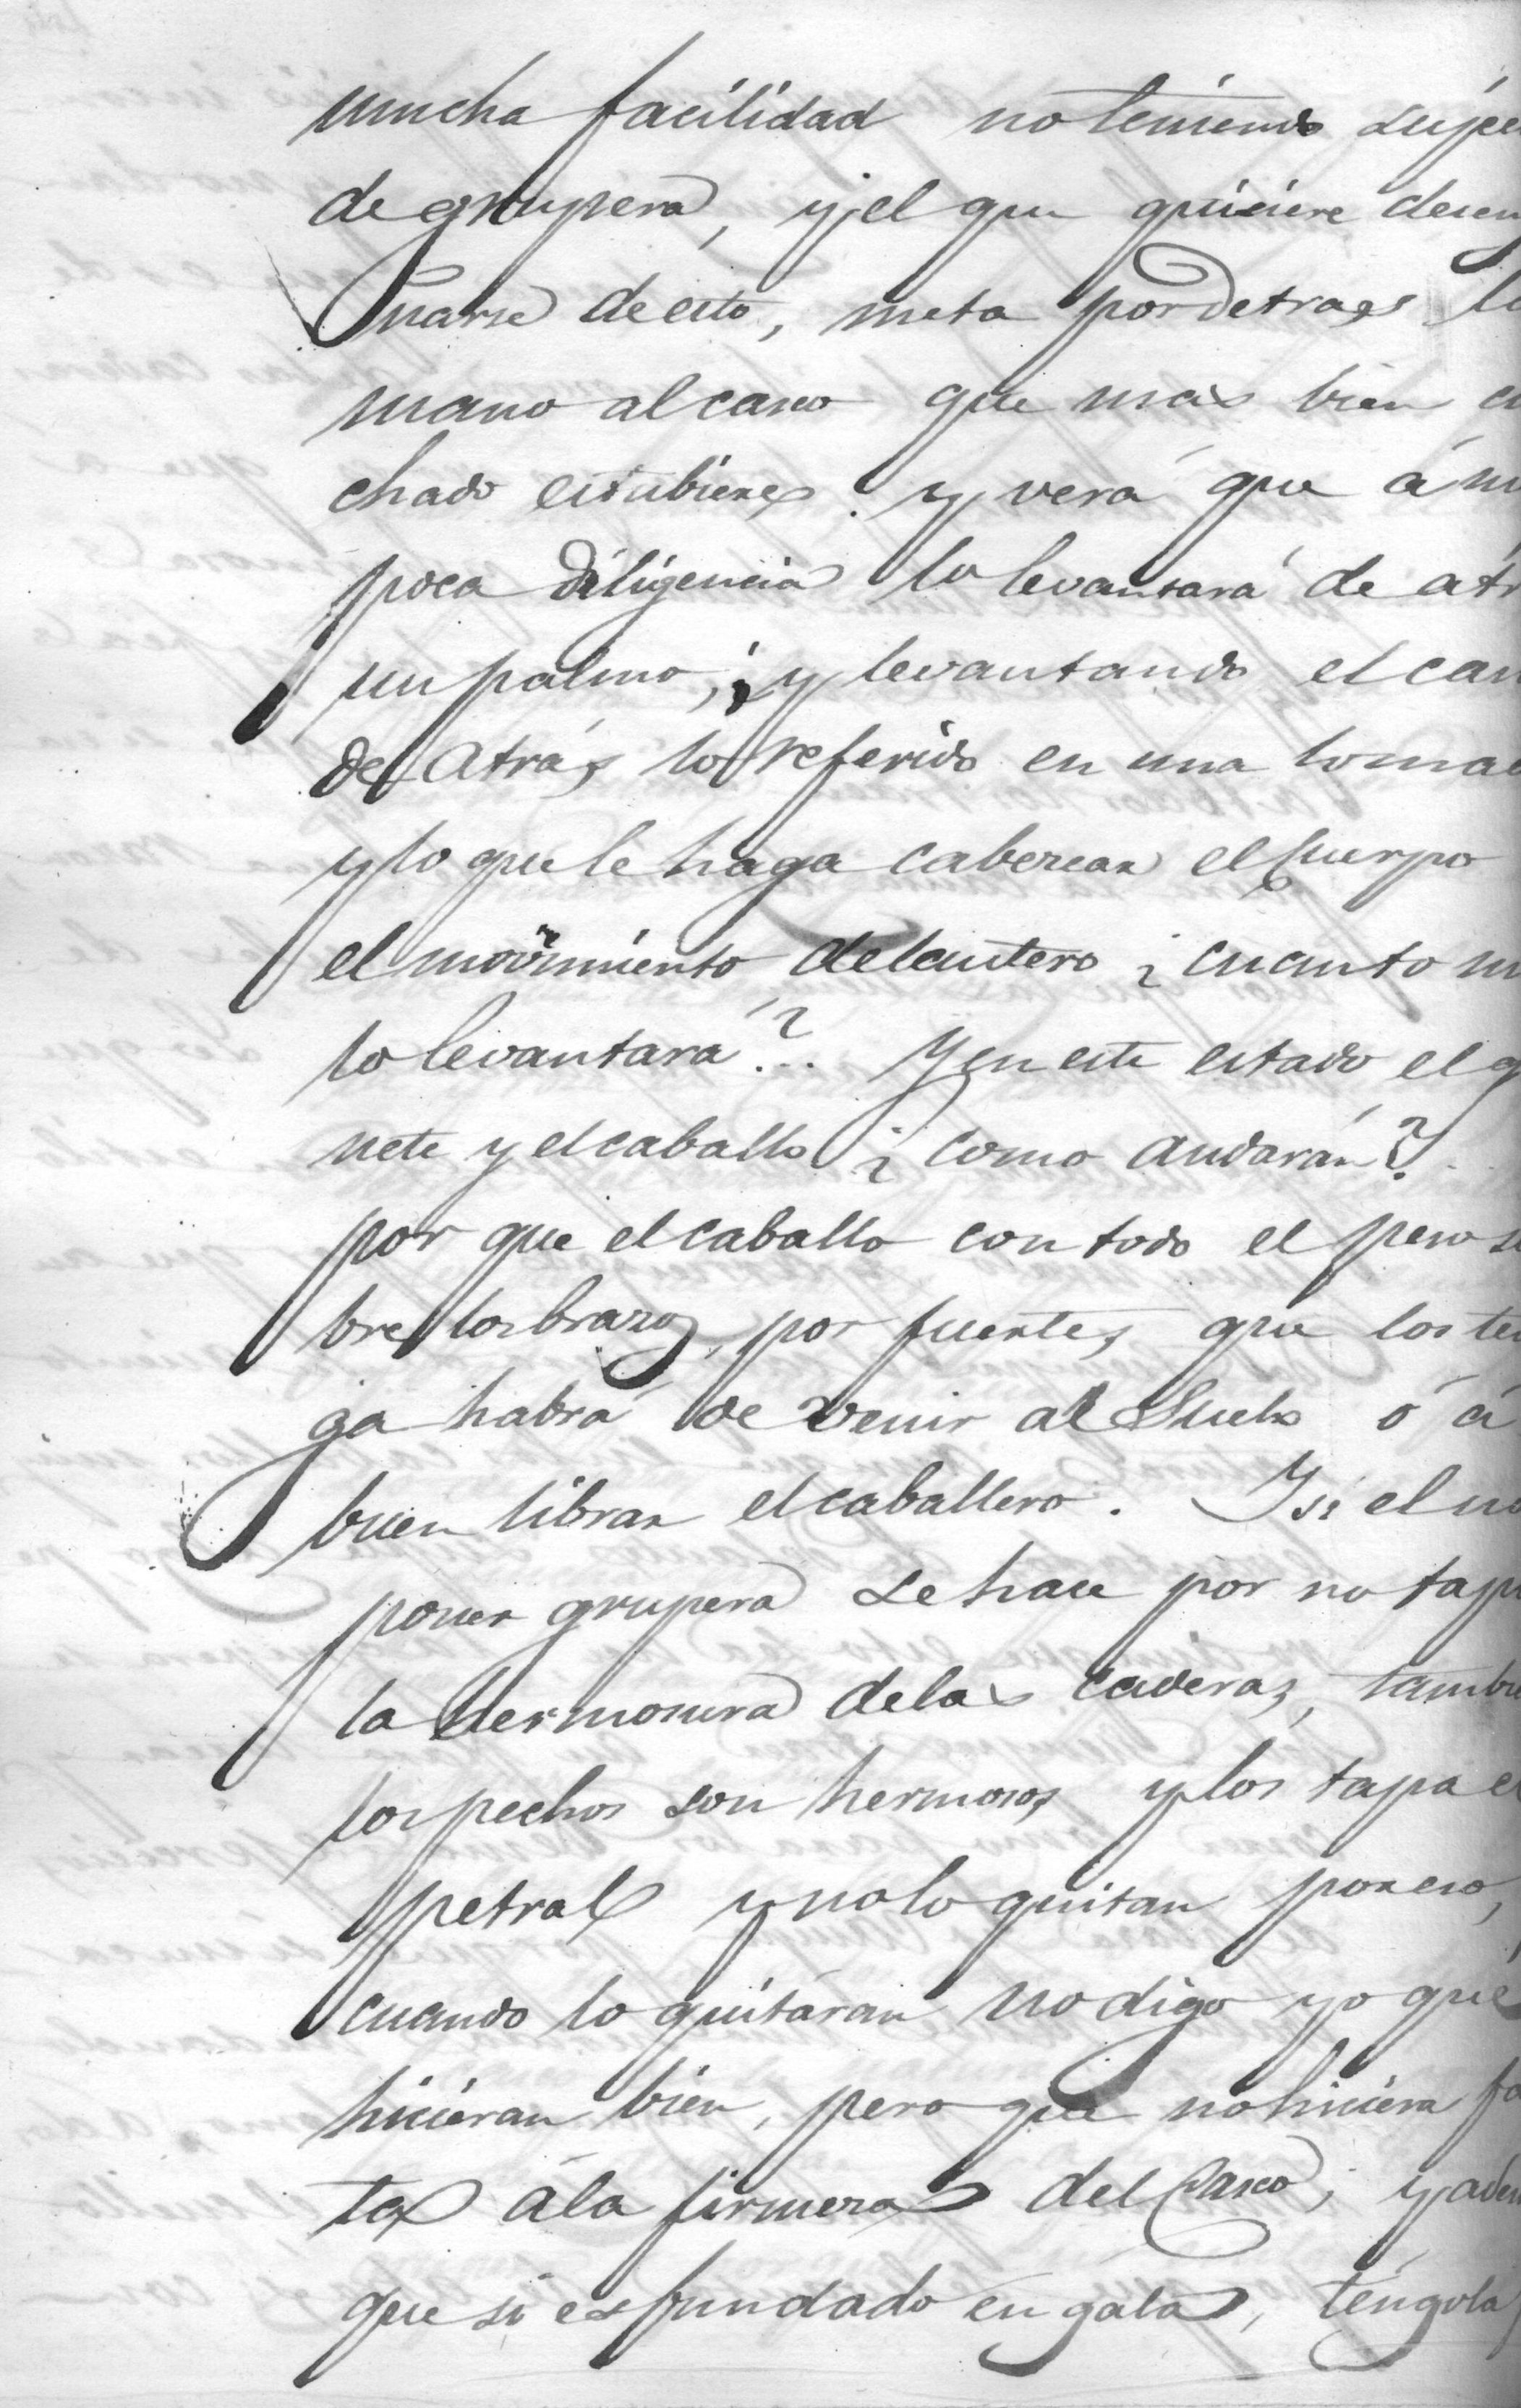 mucha facilidad no teniendo suje
de grupera, y el que quisiere desen
narse de esto, meta por detras l
mano al casco que mas bien
chado estubiere y verá que á m
poca diligencia lo levantará de atr
un palmo; y levantando el cas
de atrás lo referido en una toma
y lo que le haga cabecear el cuerpo
el movimiento delantero ¿cuanto m
lo levantará?.. Y en este estado el g
nete y el caballo ¿como andarán?..
por que el caballo con todo el peso s
bre los brazos, por fuertes que los ten
ga habrá de venir al Suelo ó á
buen librar el caballero. Y si el no
poner grupera se hace por no tapa
la hermosura de las caderas, tambie
los pechos son hermosos y los tapa e
petral y no lo quitan por eso,
cuando lo quitáran no digo yo que
hicieran bien, pero que no hiciera fa
ta á la firmeza del Casco; y adem
que si es fundado en gala, téngola